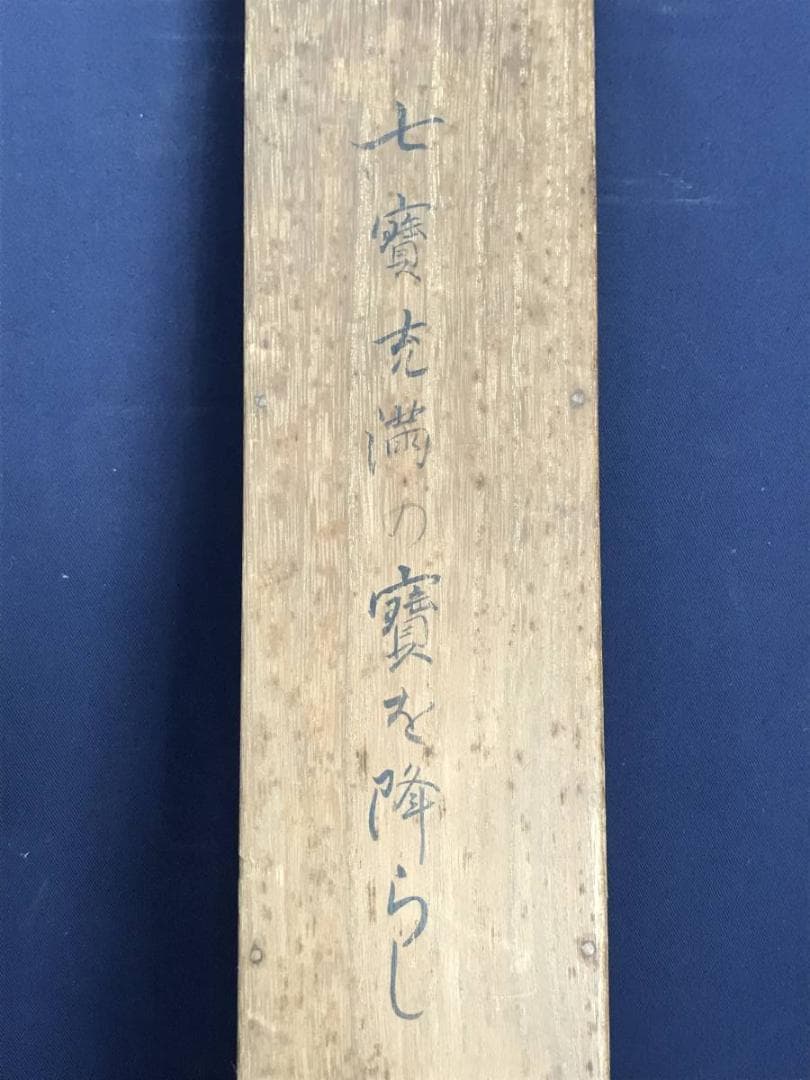 七寳充満の寳を降らし